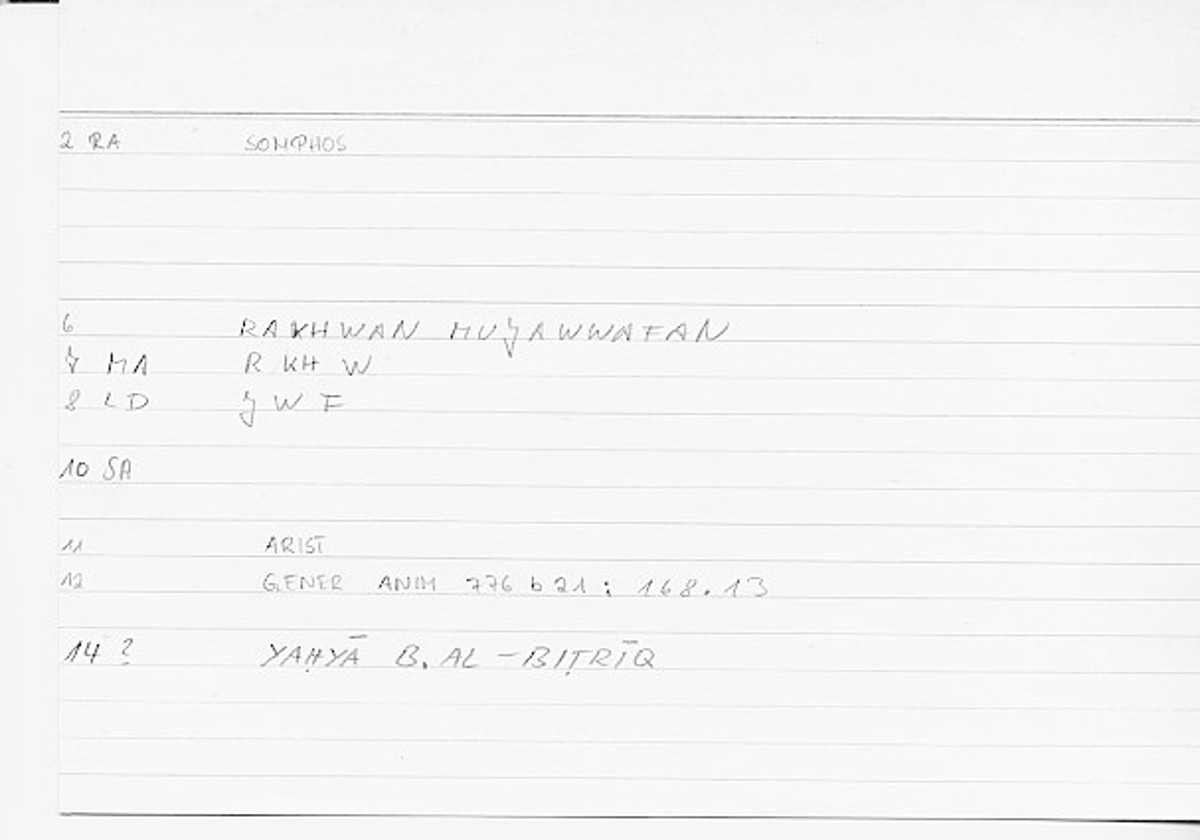 2 RA SOMPHOS
6 RAKHWAN MUJAWWAFAN
7 MA R KH W
8 LD J W F
10 SA
11 ARIST
12 GENER ANIM 776 b 21 : 168.13
14 ? YAḤYĀ B. AL-BIṬRĪQ